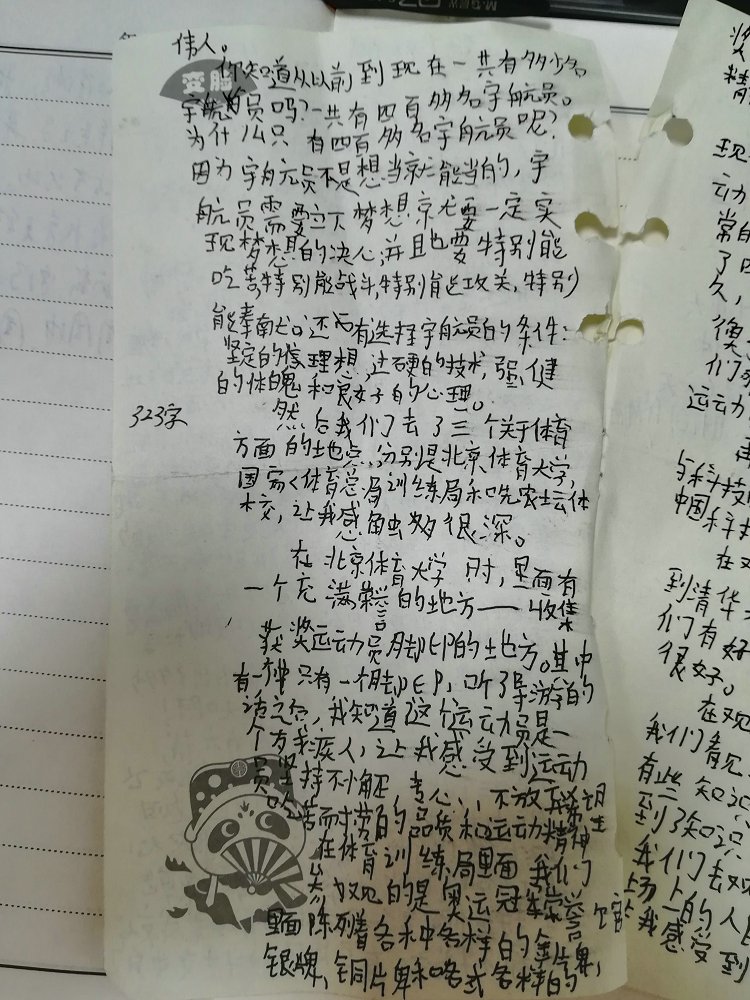 伟人。
你知道从以前到现在一共有多少名
宇航员吗?一共有四百多名宇航员。
为什么只有四百多名宇航员呢?
因为宇航员不是想当就能当的,宇
航员需要立下梦想就要一定实
现梦想的决心,并且也要特别能
吃苦,特别能战斗,特别能攻关,特别
能奉献。还有选择宇航员的条件:
坚定的理想,过硬的技术,强健
的体魄和良好的心理。
然后我们去了三个关于体育
方面的地点,分别是北京体育大学,
国家体育总局训练局和先农坛体
校,让我感触很深。
在北京体育大学时,里面有
一个充满荣誉的地方——收集
获奖运动员脚印的地方。其中
有一种只有一个脚印,听了导游的
话之后,我知道这个运动员是一
个残疾人,让我感受到运动
员坚持不懈 专心 不放弃
吃苦而耐劳的品质和运动精神
在体育训练局里面我们
参观的是奥运冠军荣誉
里面陈列着各种各样的金牌,
银牌,铜牌和各式各样的
323字
变脸
奖
精
现
动
常的
了
久,
衡
们
运动
与科技
中国科
在
到清华
们有好
很好。
在观
我们看见
有些知识
到了知识
我们去
场上的人
我感受到